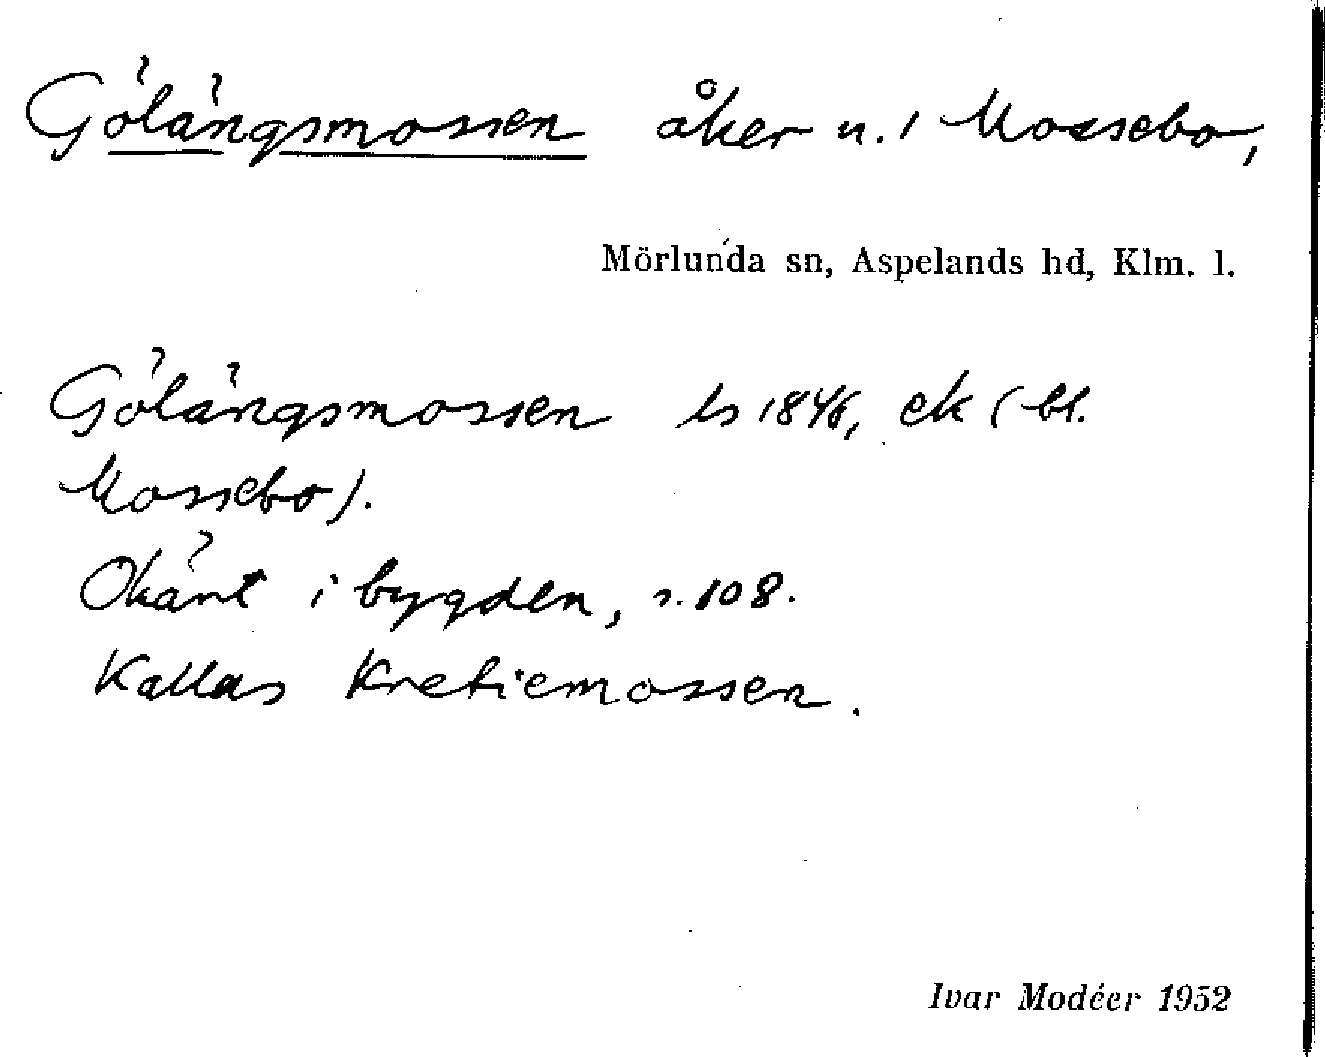 Gölängsmossen åker u. 1 Mossebo,
Mörlunda sn, Aspelands hd, Klm. l.
Gölängsmossen ls 1846, ek (bl.
Mossebo).
Okänt i bygden, s. 108.
Kallas Kretiemossen.
Ivar Modéer 1952